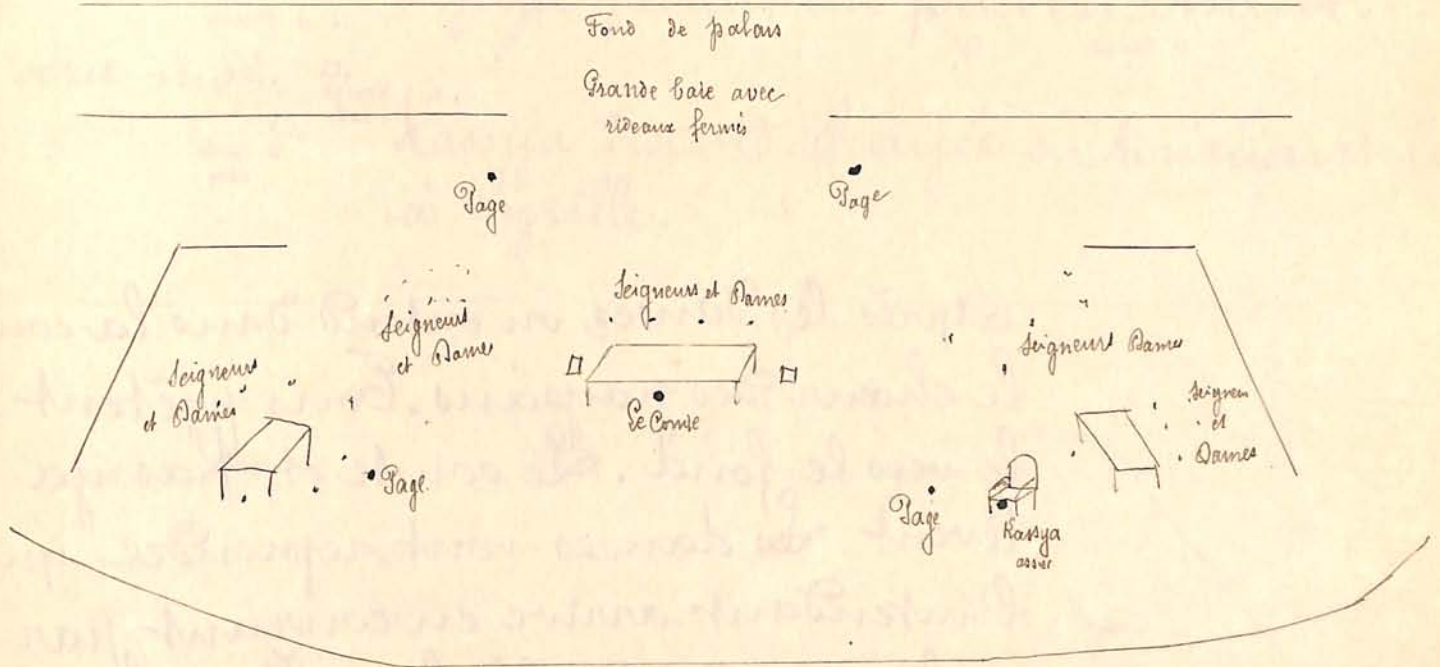 Fond de palais
Grande baie avec
rideaux fermés
Page
Page
Seigneurs et Dames
Seigneurs
et Dames
Seigneurs Dames
Seigneurs
et Dames
Seigneurs
et
Dames
Le Comte
Page
Page
Kassya
assise